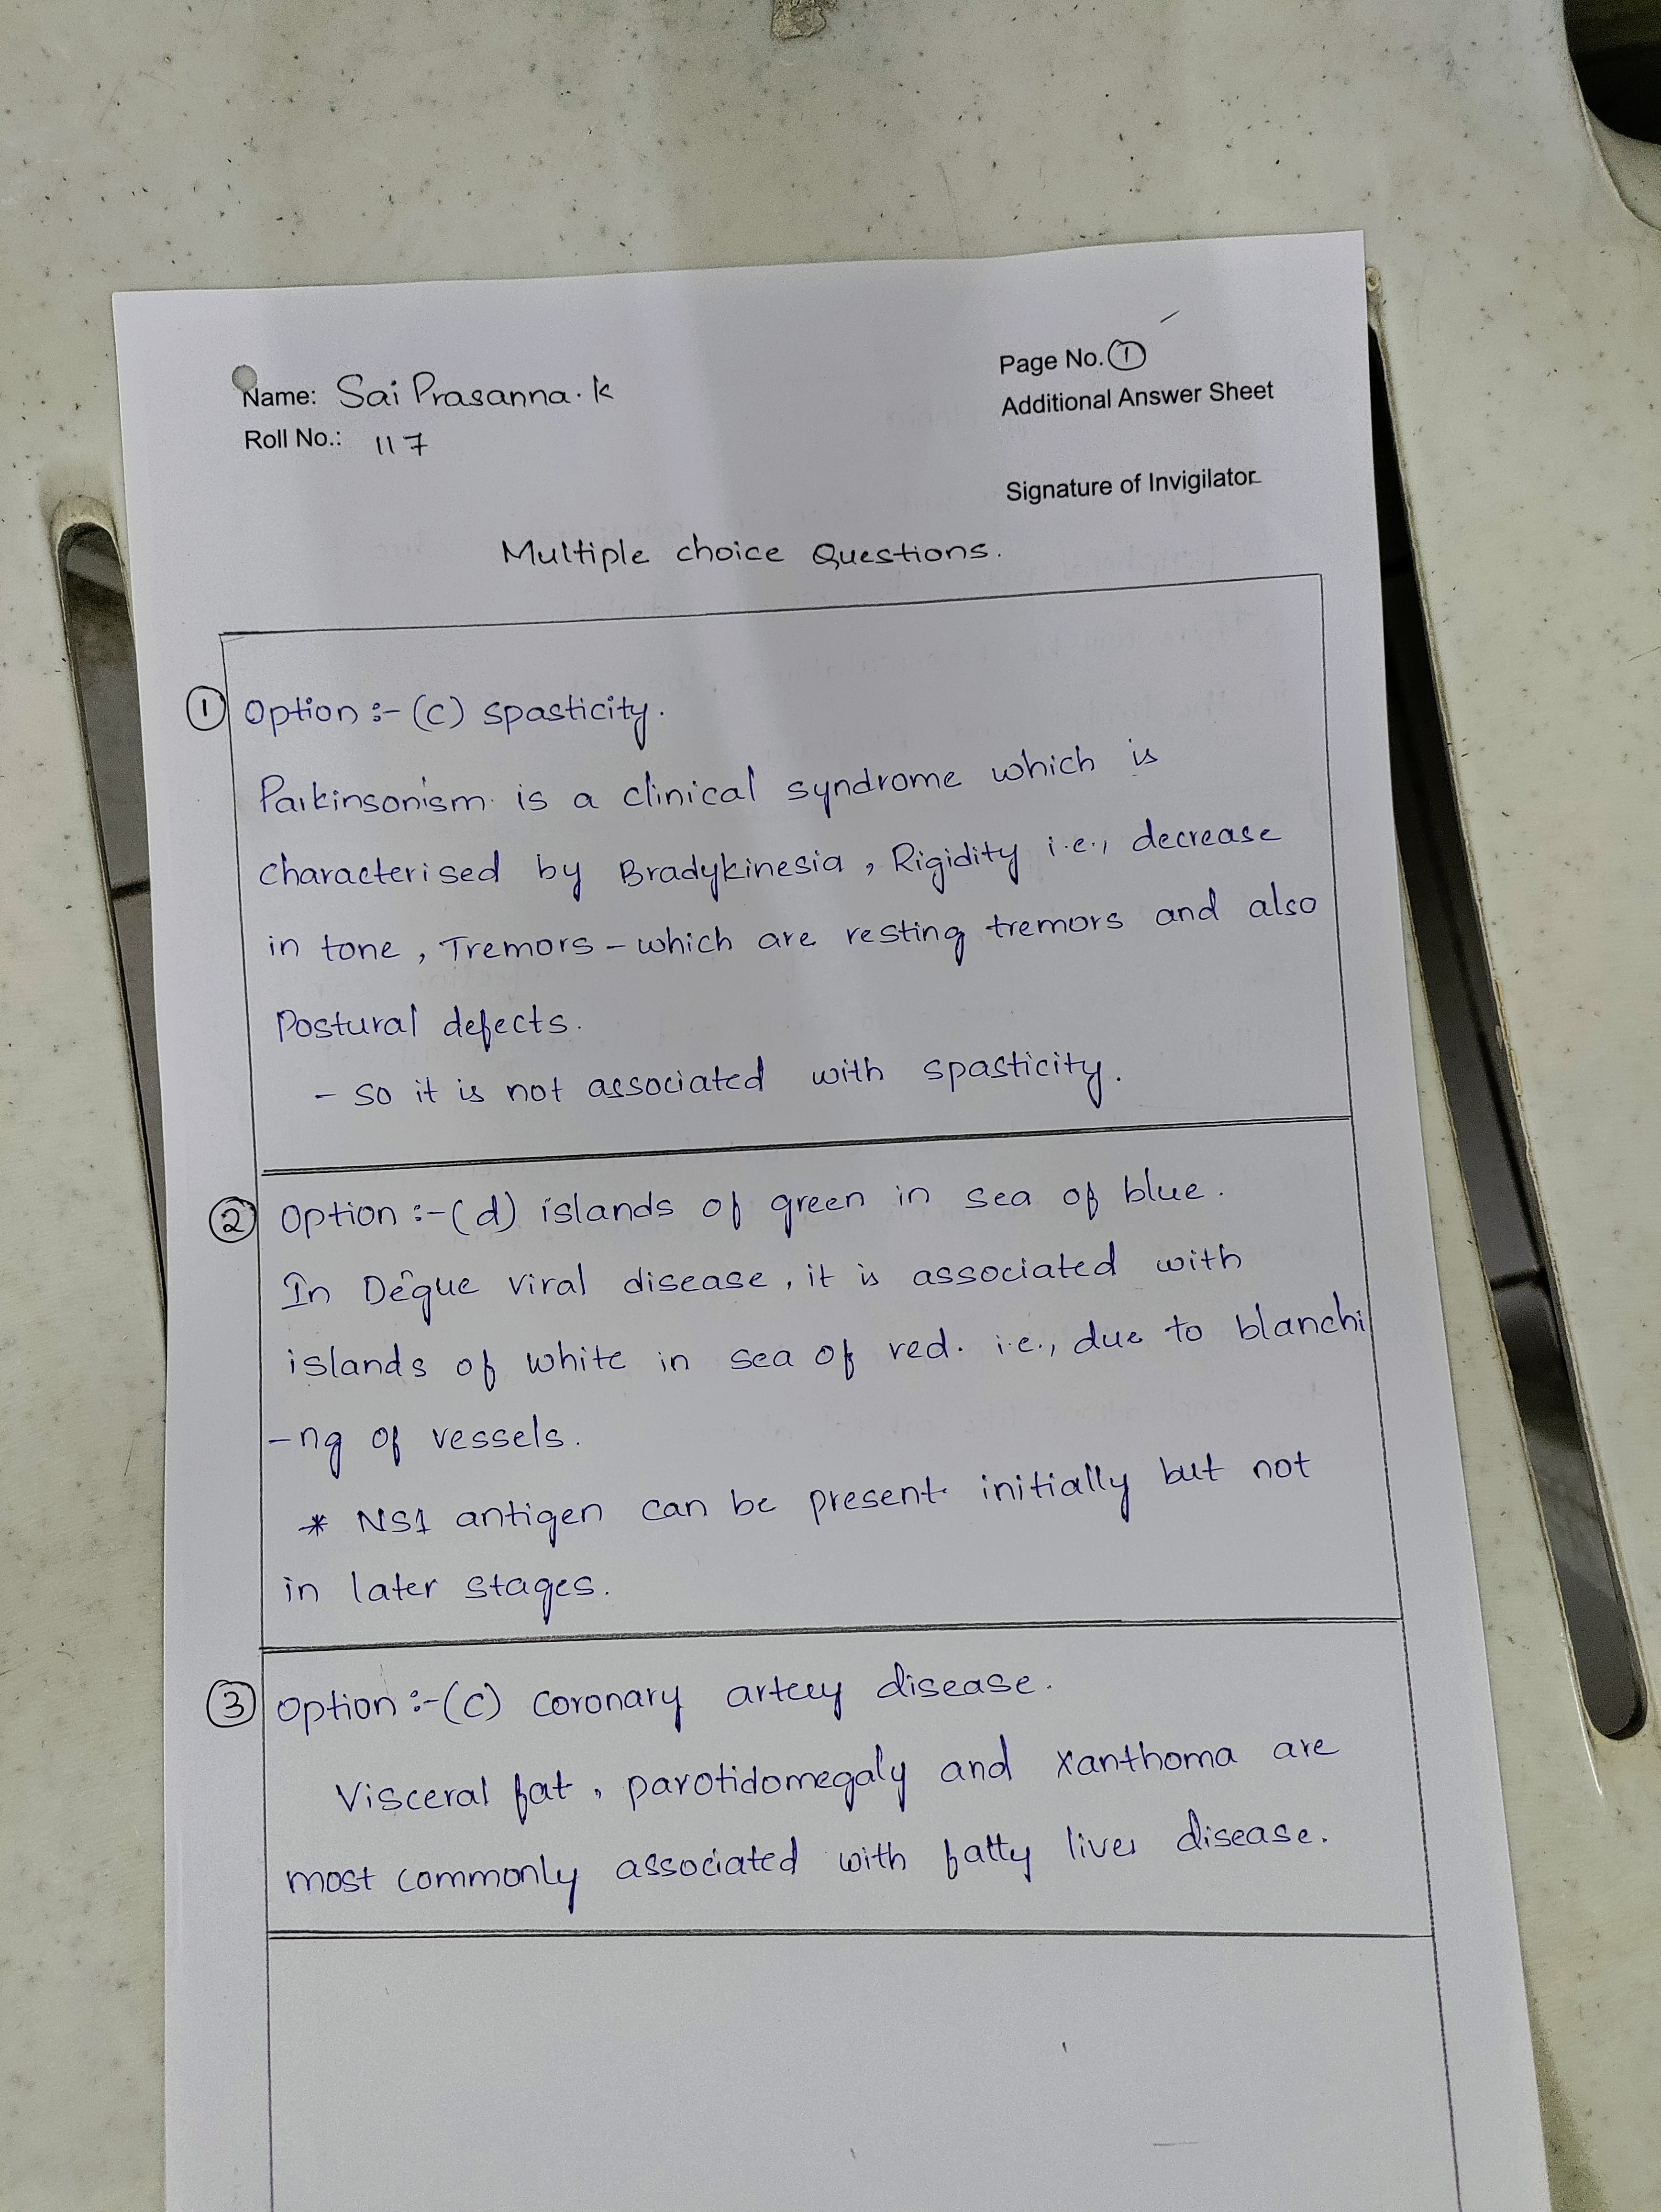 Name: Sai Prasanna. K
Roll No.: 117
Page No. 1
Additional Answer Sheet
Signature of Invigilator
Multiple choice Questions.
1 Option :- (c) spasticity.
Parkinsonism is a clinical syndrome which is
characterised by Bradykinesia, Rigidity i.e., decrease
in tone, Tremors - which are resting tremors and also
Postural defects.
- so it is not associated with spasticity.
2 Option :- (d) islands of green in sea of blue.
In Degue viral disease, it is associated with
islands of white in sea of red. i.e., due to blanchi
-ng of vessels.
* NS1 antigen can be present initially but not
in later stages.
3 Option :- (c) Coronary artery disease.
Visceral fat, parotidomegaly and Xanthoma are
most commonly associated with fatty liver disease.